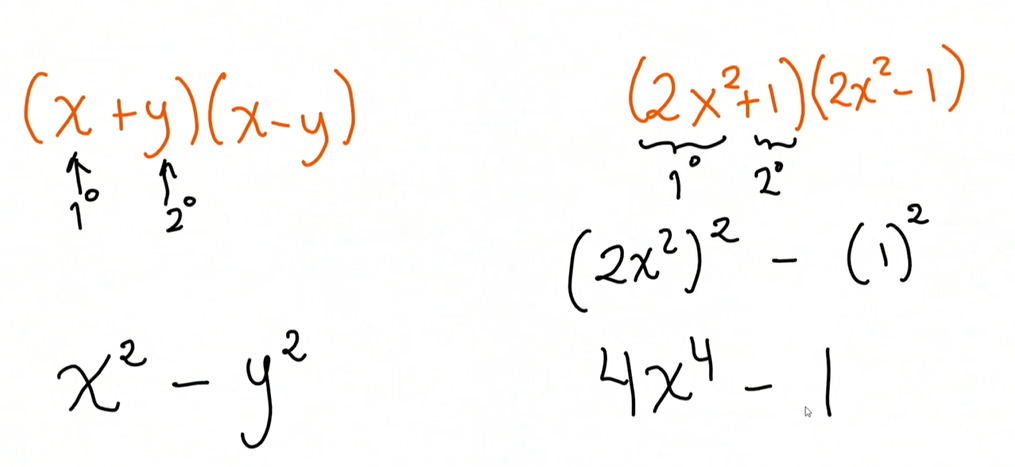 (x + y)(x - y)
1° 2°
x² - y²
(2x² + 1)(2x² - 1)
1° 2°
(2x²)² - (1)²
4x⁴ - 1